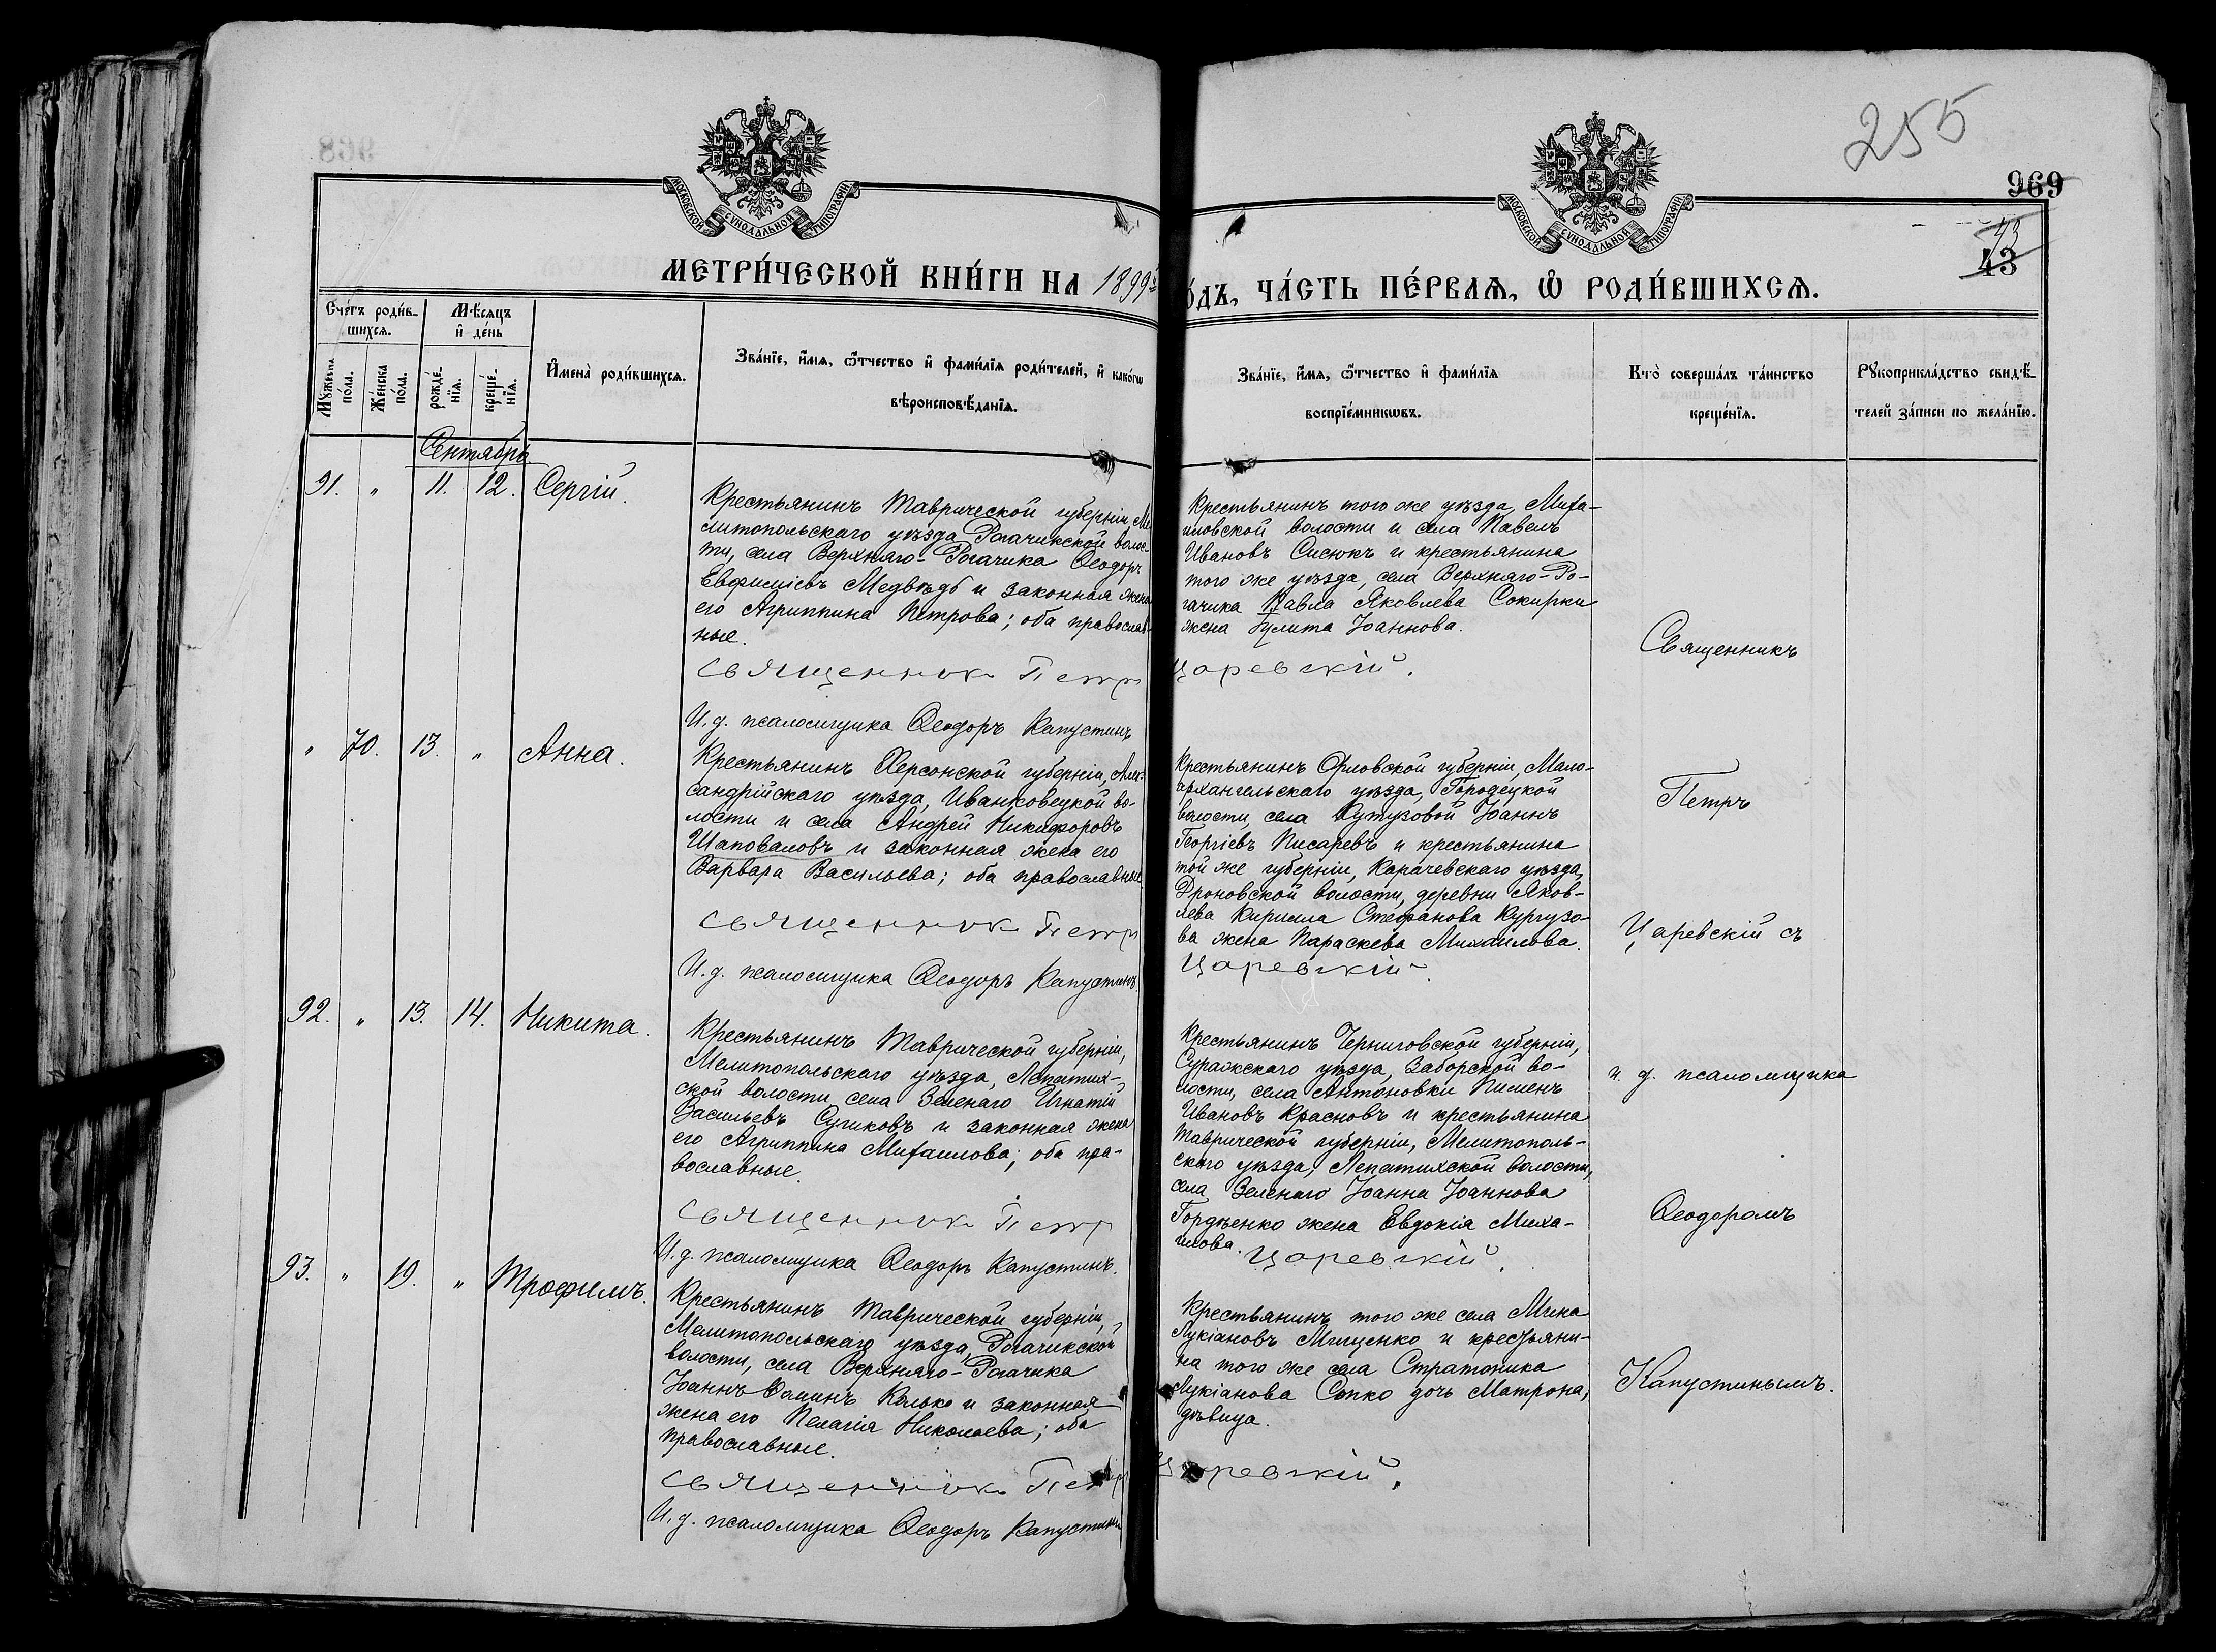 255
969
43
43
МОСКОВСКОЙ СѴНОДАЛЬНОЙ ТИПОГРАФІИ
МОСКОВСКОЙ СѴНОДАЛЬНОЙ ТИПОГРАФІИ
МЕТРИ́ЧЕСКОЙ КНИ́ГИ НА 1899й
О́ДЪ, ЧА́СТЬ ПЕ́РВАѦ, Ѿ РОДИ́ВШИХСѦ.
Сче́тъ роди́в-
шихсѧ.
Мѣ́сѧцъ
и҆ де́нь
Мꙋ́жеска
по́ла.
Же́нска
по́ла.
рожде́-
нїѧ.
креще́-
нїѧ.
И҆мена̀ роди́вшихсѧ.
Зва́нїе, и҆́мѧ, ѻ҆́тчество и҆ фами́лїѧ роди́телей, и҆ како́гѡ
вѣроисповѣ́данїѧ.
Зва́нїе, и҆́мѧ, ѻ҆́тчество и҆ фами́лїѧ
воспрїе́мникѡвъ.
Кто̀ соверша́лъ та́инство
креще́нїѧ.
Рꙋкоприкла́дство свидѣ́-
телей за́писи по жела́нїю.
Сентябрь
91. " 11. 12. Сергій.
Крестьянинъ Таврической губерніи, Ме-
литопольскаго уѣзда, Рогачикской волос-
ти, села Верхняго-Рогачика Ѳеодоръ
Евфиміевъ Медвѣдь и законная жена
его Агриппина Петрова; оба православ-
ные.
Священник Петр
И. д. псаломщика Ѳеодоръ Капустинъ
Крестьянинъ того же уѣзда, Миха-
иловской волости и села Павелъ
Ивановъ Сисюкъ и крестьянина
того же уѣзда, села Верхняго-Ро-
гачика Павла Яковлева Сокирки
жена Іулита Іоаннова.
Царевскій.
" 70. 13. " Анна.
Крестьянинъ Херсонской губерніи, Алек-
сандрійскаго уѣзда, Иванковецкой во-
лости и села Андрей Никифоровъ
Шаповаловъ и законная жена его
Варвара Васильева; оба православные
Священник Петр
И. д. псаломщика Ѳеодоръ Капустинъ.
Крестьянинъ Орловской губерніи, Мало-
архангельскаго уѣзда, Городецкой
волости, села Кутузовой Іоаннъ
Георгіевъ Писаревъ и крестьянина
той же губерніи, Карачевскаго уѣзда,
Дроновской волости, деревни Яков-
лева Кирилла Стефанова Кургузо-
ва жена Параскева Михаилова.
Царевскій.
92. " 13. 14. Никита.
Крестьянинъ Таврической губерніи,
Мелитопольскаго уѣзда, Лепатих-
ской волости, села Зеленаго Игнатій
Васильевъ Сучковъ и законная жена
его Агриппина Михаилова; оба пра-
вославные.
Священник Петр
И. д. псаломщика Ѳеодоръ Капустинъ.
Крестьянинъ Черниговской губерніи,
Суражскаго уѣзда, Заборской во-
лости, села Антоновки Пименъ
Ивановъ Красновъ и крестьянина
Таврической губерніи, Мелитополь-
скаго уѣзда, Лепатихской волости,
села Зеленаго Іоанна Іоаннова
Гордѣенко жена Евдокія Миха-
илова.
Царевскій.
93. " 19. " Трофимъ.
Крестьянинъ Таврической губерніи,
Мелитопольскаго уѣзда, Рогачикской
волости, села Верхняго-Рогачика
Іоаннъ Ѳоминъ Колько и законная
жена его Пелагія Николаева; оба
православные.
Священник Петр
И. д. псаломщика Ѳеодоръ Капустинъ
Крестьянинъ того же села Мина
Лукіановъ Мищенко и крестьяни-
на того же села Стратоника
Лукіанова Сопко дочь Матрона,
дѣвица.
Царевскій.
Священникъ
Петръ
Царевскій съ
и. д. псаломщика
Ѳеодоромъ
Капустинымъ.